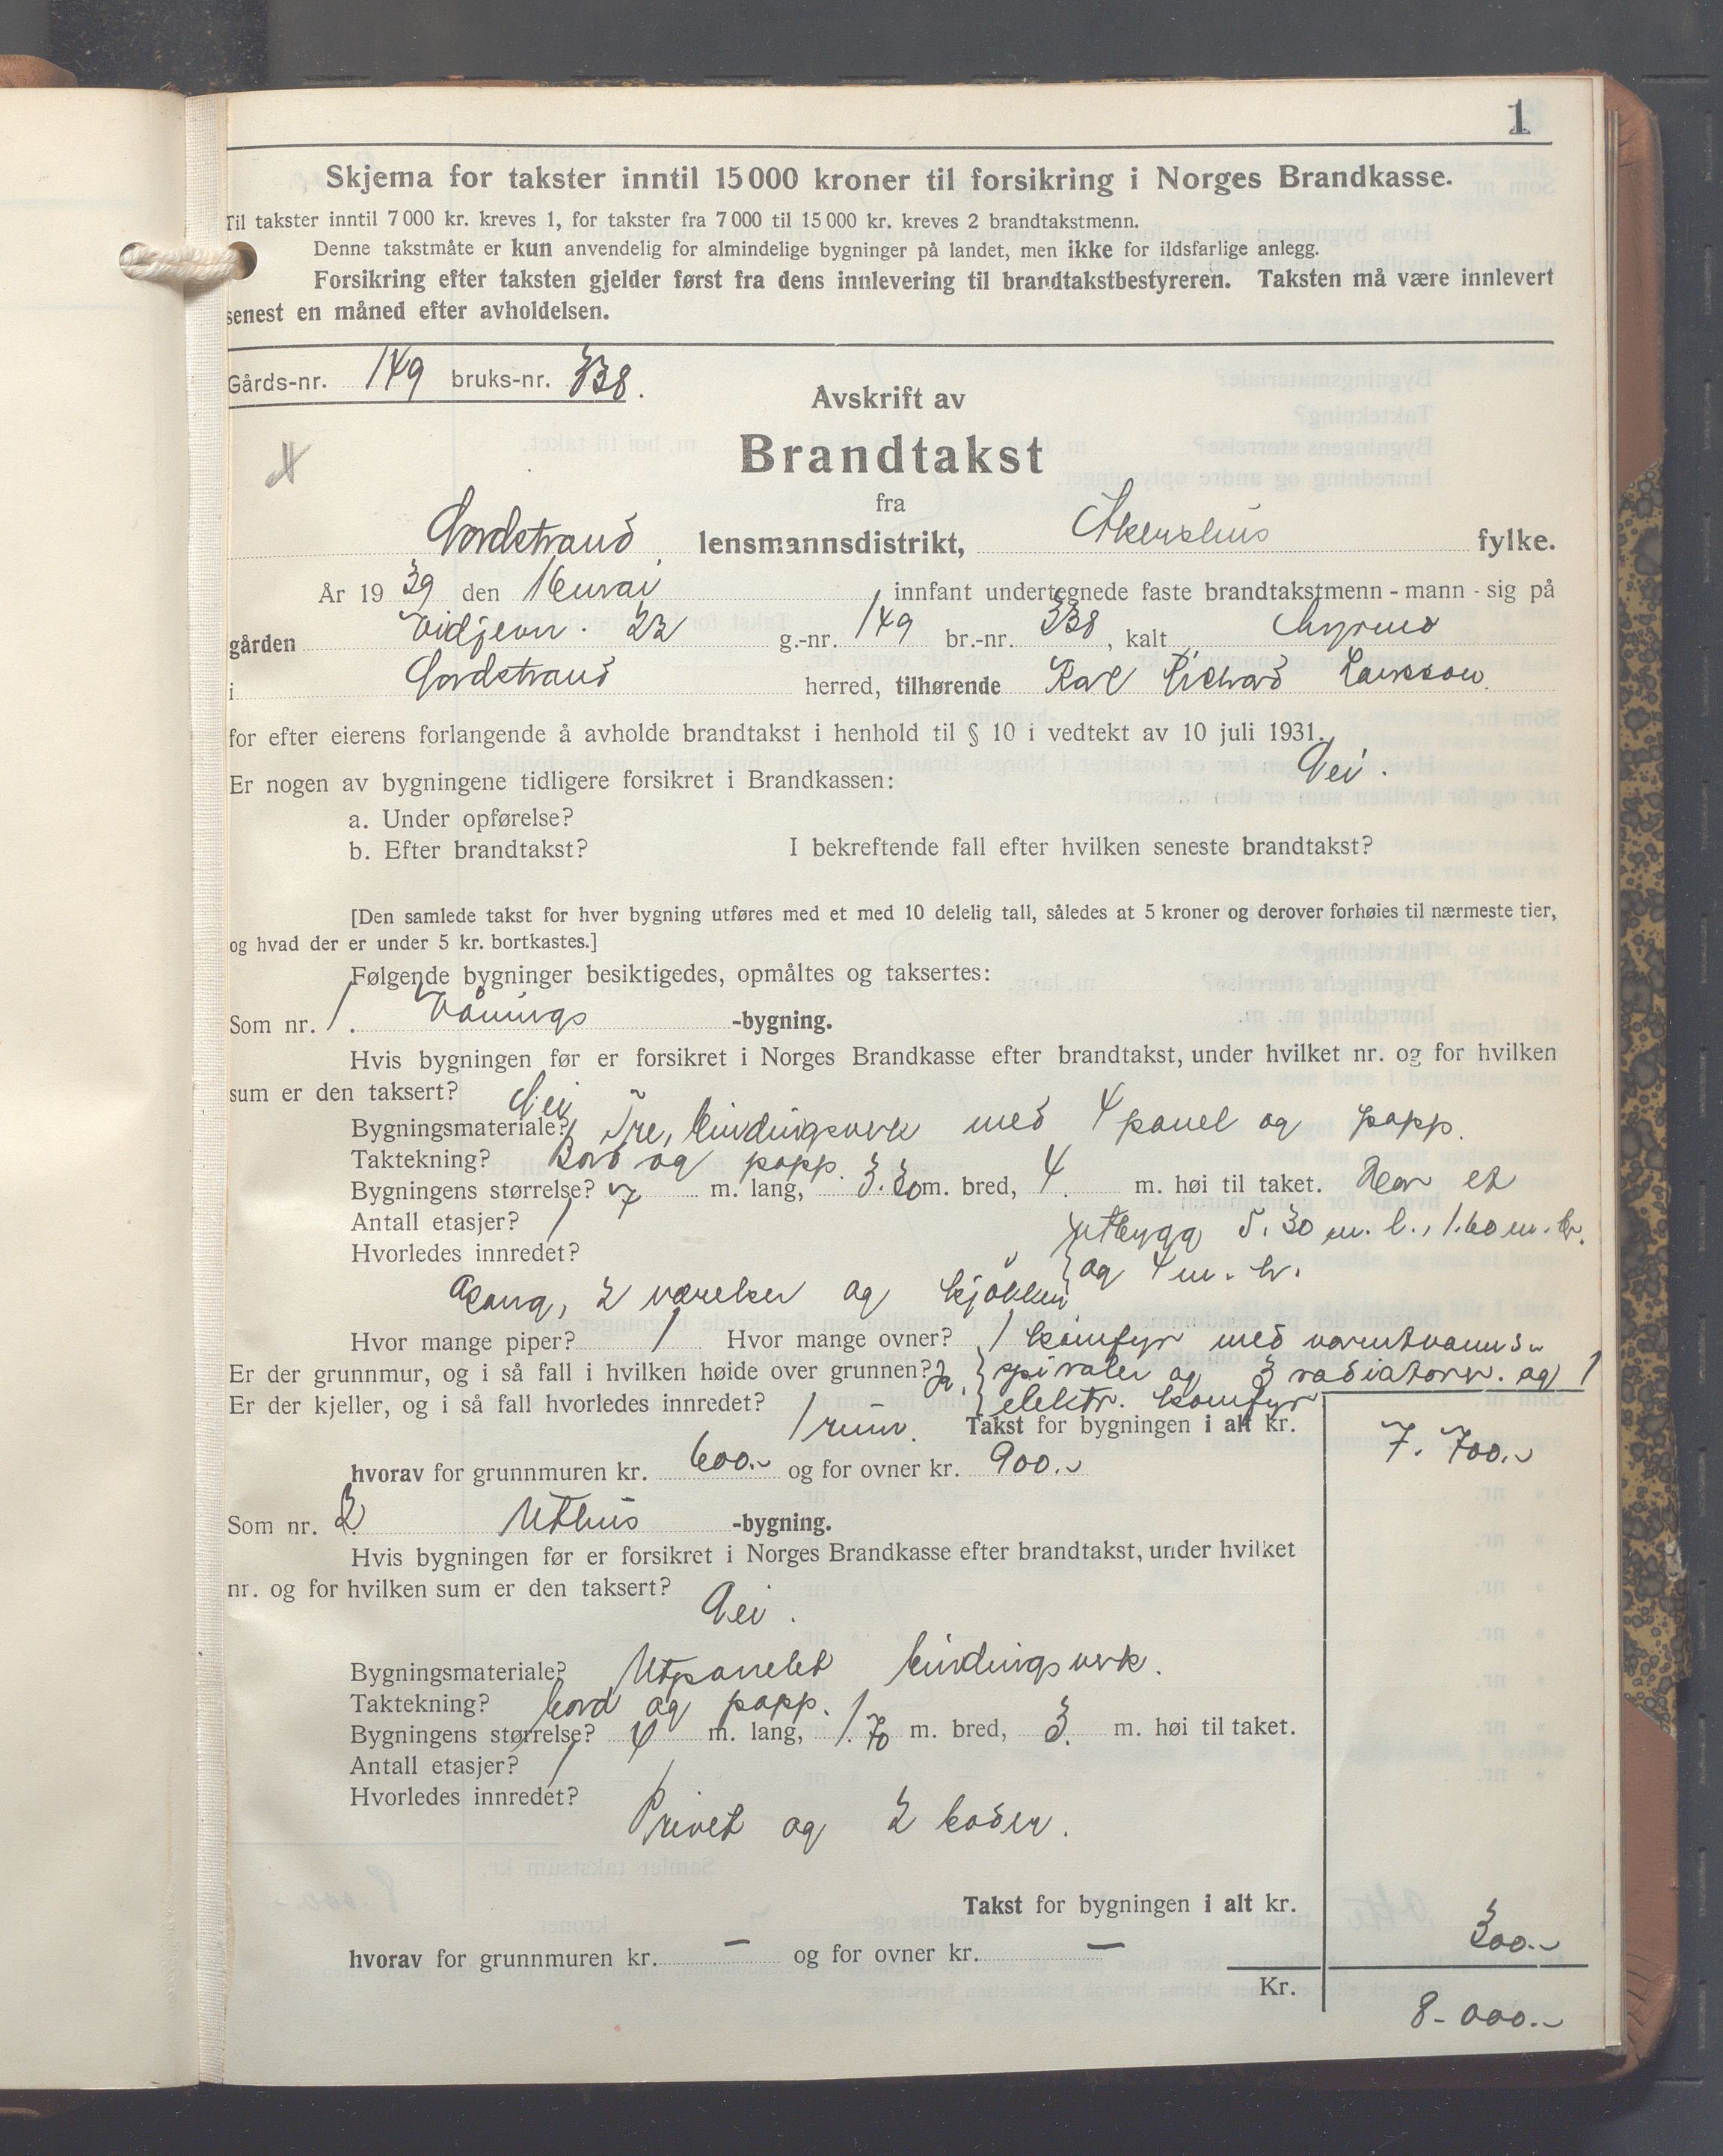 1
Skjema for takster inntil 15 000 kroner til forsikring i Norges Brandkasse.
Til takster inntil 7 000 kr. kreves 1, for takster fra 7 000 til 15 000 kr. kreves 2 brandtakstmenn.
Denne takstmåte er kun anvendelig for almindelige bygninger på landet, men ikke for ildsfarlige anlegg.
Forsikring efter taksten gjelder først fra dens innlevering til brandtakstbestyreren. Taksten må være innlevert
senest en måned efter avholdelsen.
Gårds-nr. 149 bruks-nr. 338.
Avskrift av
Brandtakst
fra
Nordstrand lensmannsdistrikt, Akershus fylke.
År 1939 den 16 mai innfant undertegnede faste brandtakstmenn - mann - sig på
gården 22 g.-nr. 149 br.-nr. 338, kalt
i Nordstrand herred, tilhørende Karl Richard Larsson.
for efter eierens forlangende å avholde brandtakst i henhold til § 10 i vedtekt av 10 juli 1931.
Er nogen av bygningene tidligere forsikret i Brandkassen: Nei.
a. Under opførelse?
b. Efter brandtakst? I bekreftende fall efter hvilken seneste brandtakst?
[Den samlede takst for hver bygning utføres med et med 10 delelig tall, således at 5 kroner og derover forhøies til nærmeste tier,
og hvad der er under 5 kr. bortkastes.]
Følgende bygninger besiktigedes, opmåltes og taksertes:
Som nr. 1. Vånings -bygning.
Hvis bygningen før er forsikret i Norges Brandkasse efter brandtakst, under hvilket nr. og for hvilken
sum er den taksert? Nei
Bygningsmateriale? Tre, bindingsverk med 4 panel og papp.
Taktekning? Bord og papp.
Bygningens størrelse? 7 m. lang, 3.30 m. bred, 4. m. høi til taket. Har et
Antall etasjer? 1 utbygg 5.30 m. l., 1.60 m. br.
Hvorledes innredet? og 4 m. h.
Gang, 2 værelser og kjøkken
Hvor mange piper? 1 Hvor mange ovner? 1 komfyr med varmtvanns-
Er der grunnmur, og i så fall i hvilken høide over grunnen? Ja. spiraler og 3 radiatorer. og 1
Er der kjeller, og i så fall hvorledes innredet? elektr. komfyr
1 rum. Takst for bygningen i alt kr. 7.700.-
hvorav for grunnmuren kr. 600.- og for ovner kr. 900.-
Som nr. 2. Uthus -bygning.
Hvis bygningen før er forsikret i Norges Brandkasse efter brandtakst, under hvilket
nr. og for hvilken sum er den taksert?
Nei.
Bygningsmateriale? Utpanelet bindingsverk.
Taktekning? bord og papp.
Bygningens størrelse? 4 m. lang, 1.70 m. bred, 3. m. høi til taket.
Antall etasjer? 1
Hvorledes innredet?
Privet og 2 boder.
Takst for bygningen i alt kr. 300.-
hvorav for grunnmuren kr. — og for ovner kr. —
Kr. 8-000.-